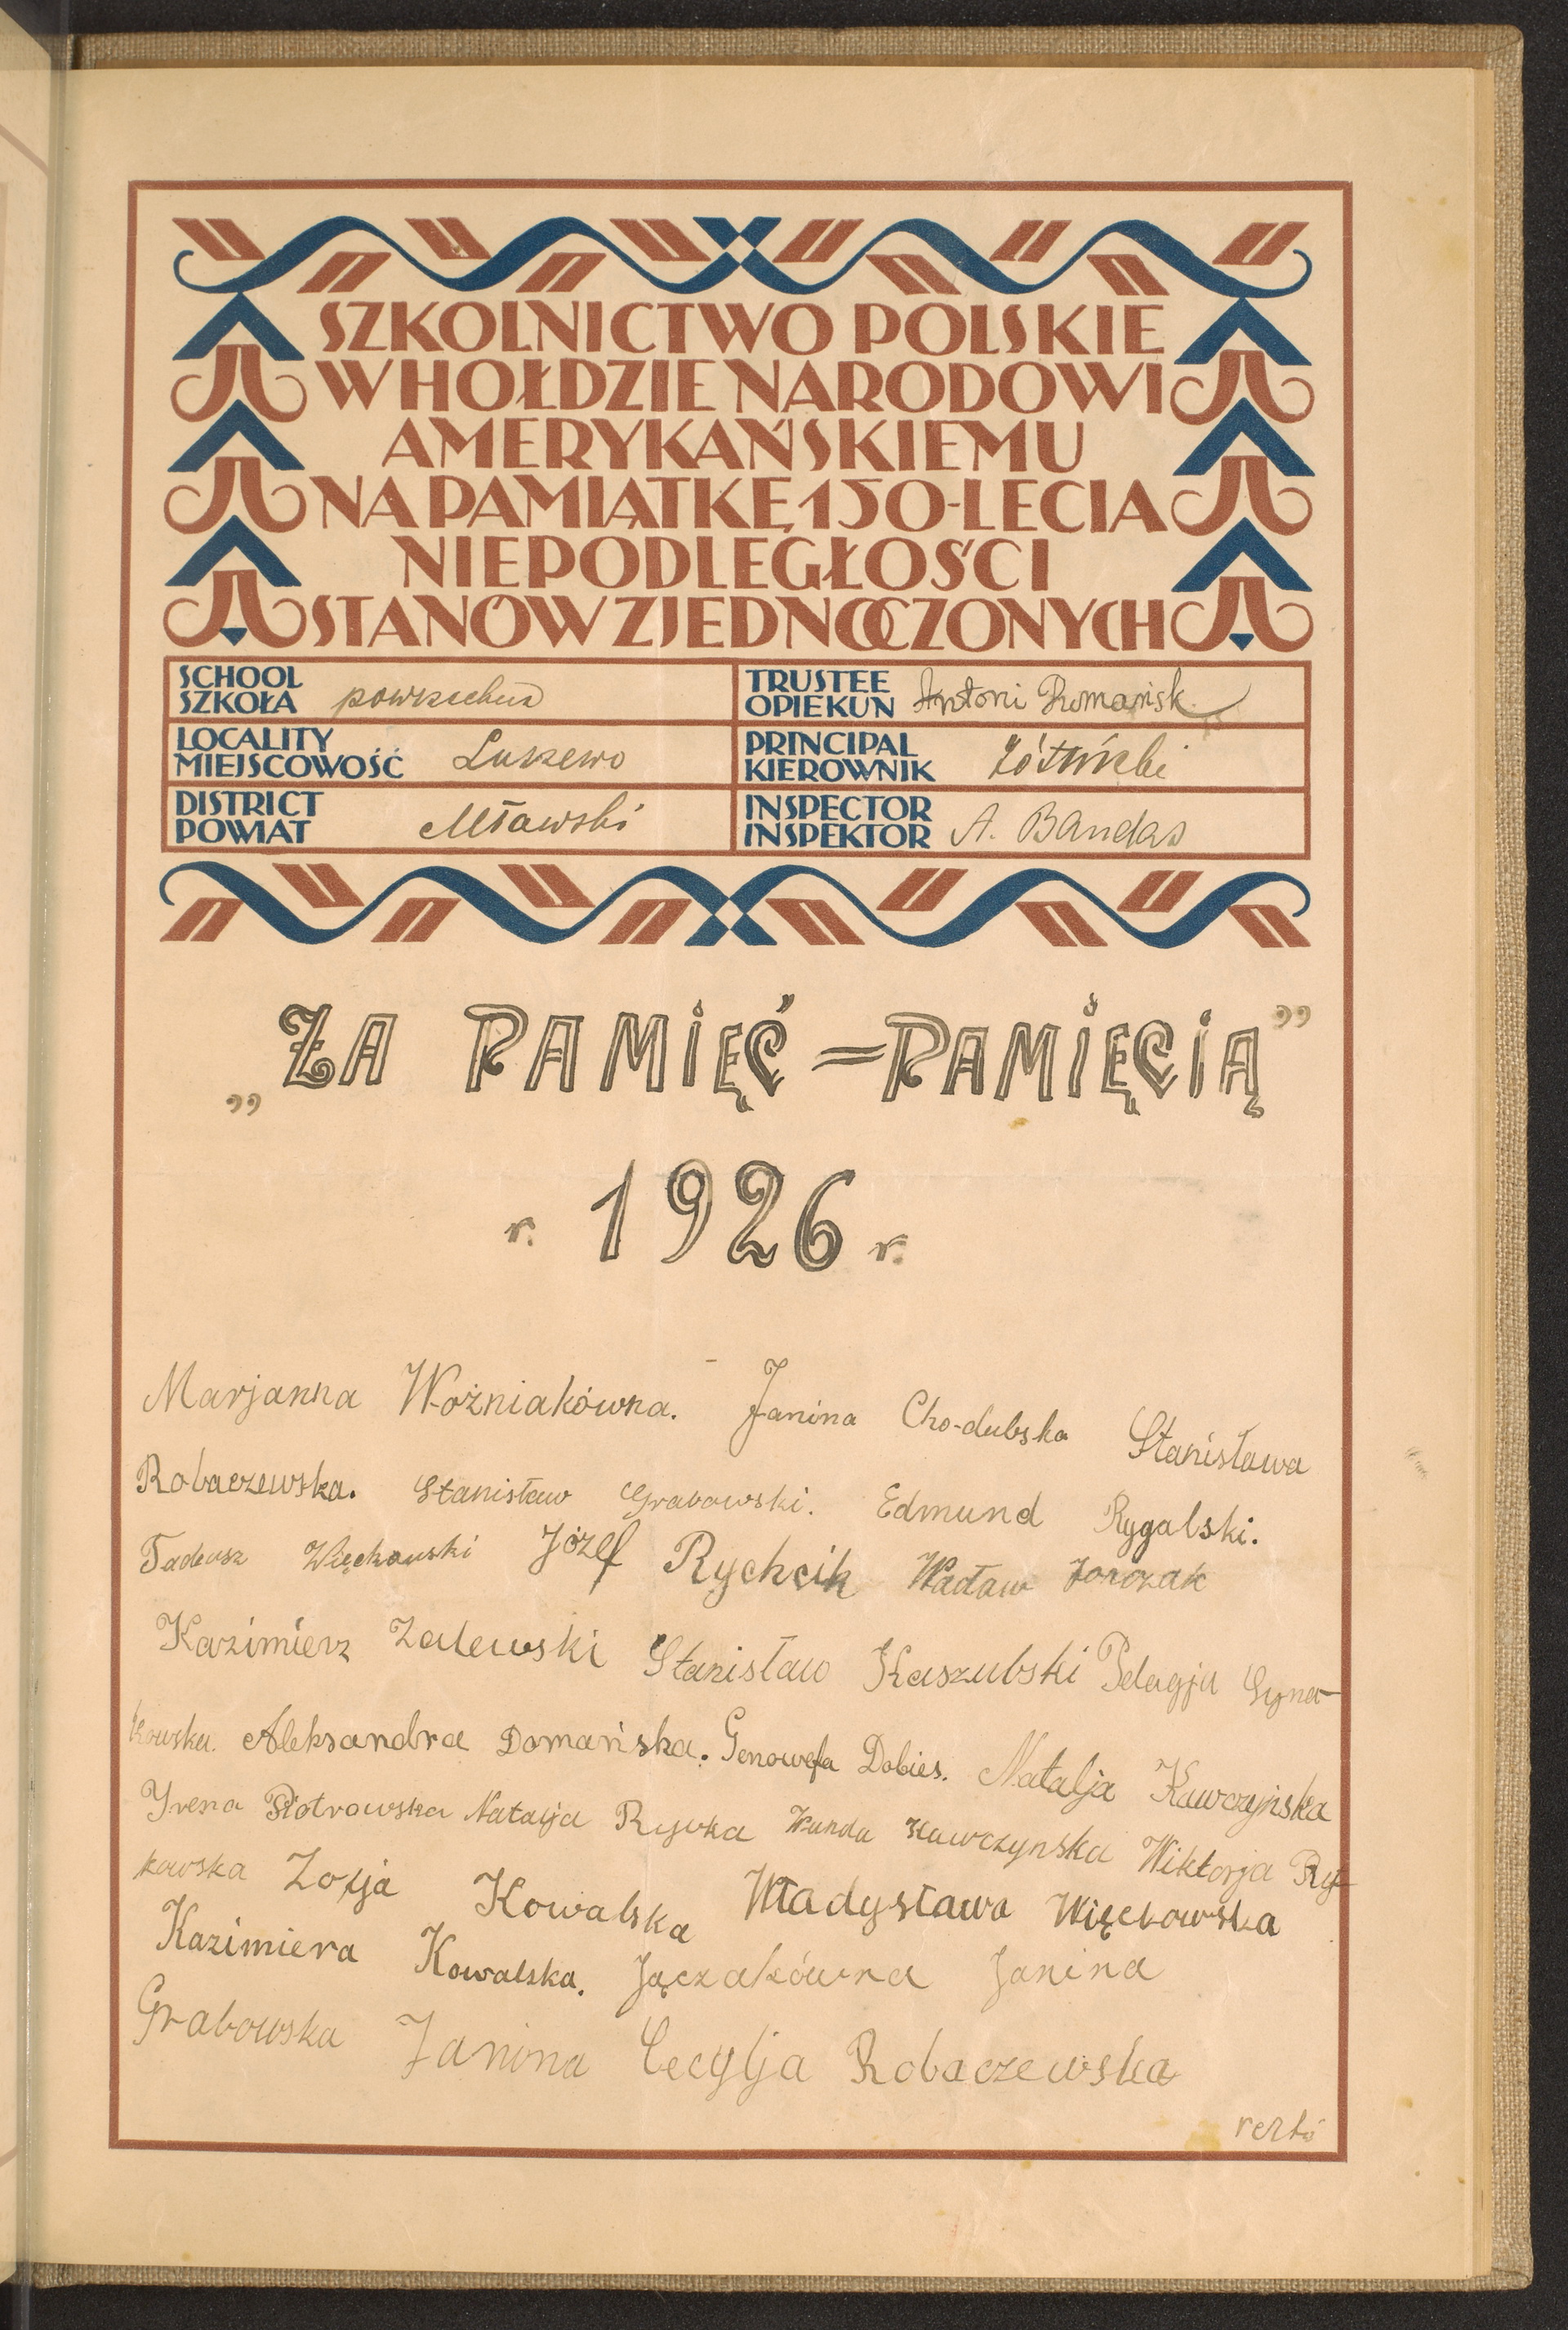 SZKOLNICTWO POLSKIE
W HOŁDZIE NARODOWI
AMERYKAŃSKIEMU
NA PAMIĄTKĘ 150-LECIA
NIEPODLEGŁOŚCI
STANÓW ZJEDNOCZONYCH
SCHOOL
SZKOŁA powszechna
TRUSTEE
OPIEKUN Antoni Romański
LOCALITY
MIEJSCOWOŚĆ
PRINCIPAL
KIEROWNIK
DISTRICT
POWIAT Mławski
INSPECTOR
INSPEKTOR A. Bandas
„ZA PAMIĘĆ = PAMIĘCIĄ”
r. 1926 r.
Marjanna Woźniakówna. Janina Cho-dubska Stanisława
Robaczewska. Stanisław Grabowski. Edmund Rygalski.
Tadeusz Więckowski Józef Rychcik Wacław
Kazimierz Zalewski Stanisław Kaszubski Pelagja
kowska. Aleksandra Domańska. Genowefa Dobies. Natalja Kawczyńska
Yrena Piotrowska Natalja Wanda Kawczynska Wiktorja Ryt-
kowska Zofja Kowalska Władysława Więckowska
Kazimiera Kowalska. Jączakówna Janina
Grabowska Janina Cecylja Robaczewska